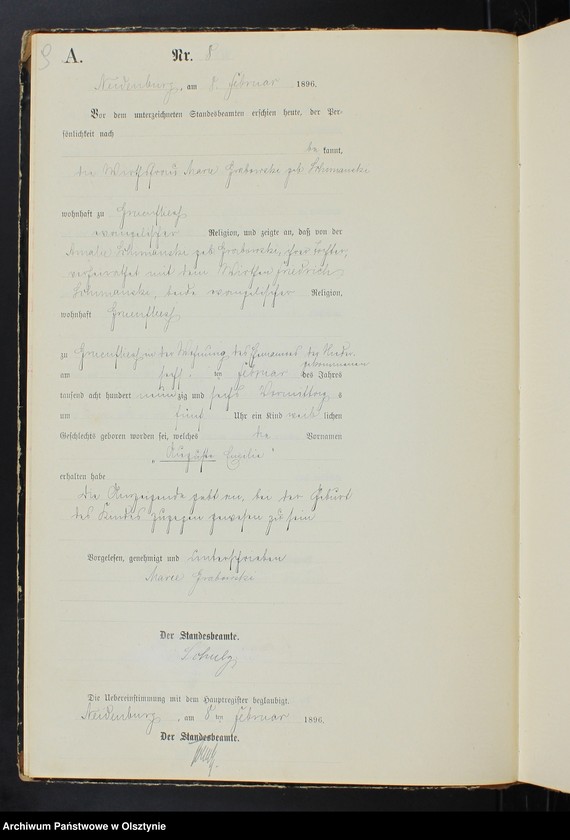 9
A. Nr. 8
Neidenburg, am 8. Februar 1896.
Vor dem unterzeichneten Standesbeamten erschien heute, der Per-
sönlichkeit nach
be kannt,
die Wirthsfrau Marie Grabowske geb. Schimanski
wohnhaft zu
evangelischer Religion, und zeigte an, daß von der
Amalie Schimanski geb. Grabowske, ihrer Tochter,
verheirathet mit dem Wirthen Friedrich
Schimanski, beide evangelischer Religion,
wohnhaft
zu in der Wohnung des Ehemannes der Nieder-
gekommenen
am sechs ten Februar des Jahres
tausend acht hundert neun zig und sechs Vormittag s
um fünf Uhr ein Kind weib lichen
Geschlechts geboren worden sei, welches die Vornamen
"Auguste Emilie"
erhalten habe
die Anzeigende gibt an, bei der Geburt
des Kindes zugegen gewesen zu sein
Vorgelesen, genehmigt und unterschrieben
Marie Grabowske
Der Standesbeamte.
Schulz
Die Uebereinstimmung mit dem Hauptregister beglaubigt.
Neidenburg, am 8 ten Februar 1896.
Der Standesbeamte.
Archiwum Państwowe w Olsztynie